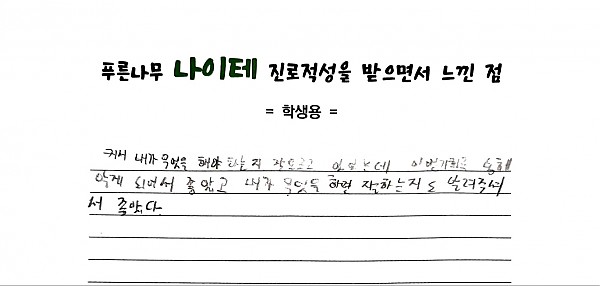 푸른나무 나이테 진로적성을 받으면서 느낀 점
= 학생용 =
커서 내가 무엇을 해야 하는지 잘모르고 있었는데 이번기회를 통해
알게 되면서 좋았고 내가 무엇을 하면 잘하는지도 알려주셔
서 좋았다.